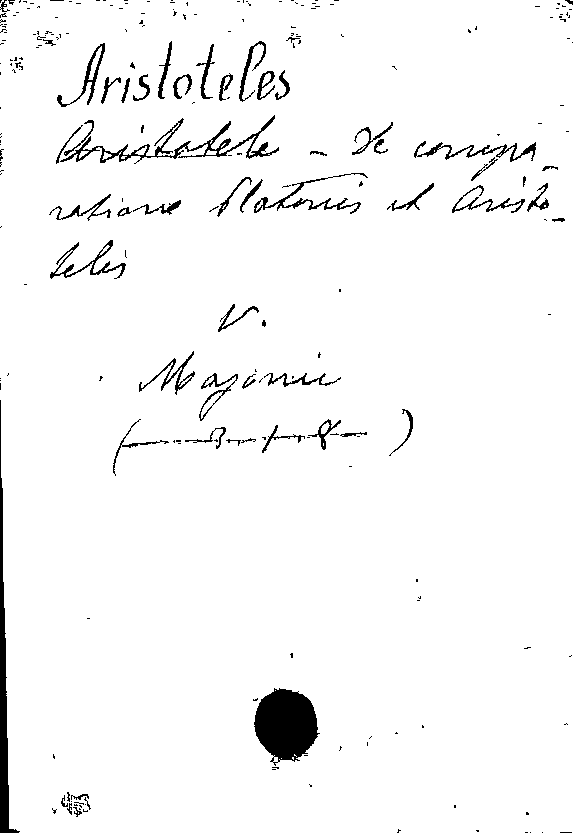 Aristoteles
Aristotele – De compa-
ratione Platonis et Aristo-
telis
V.
Majonii